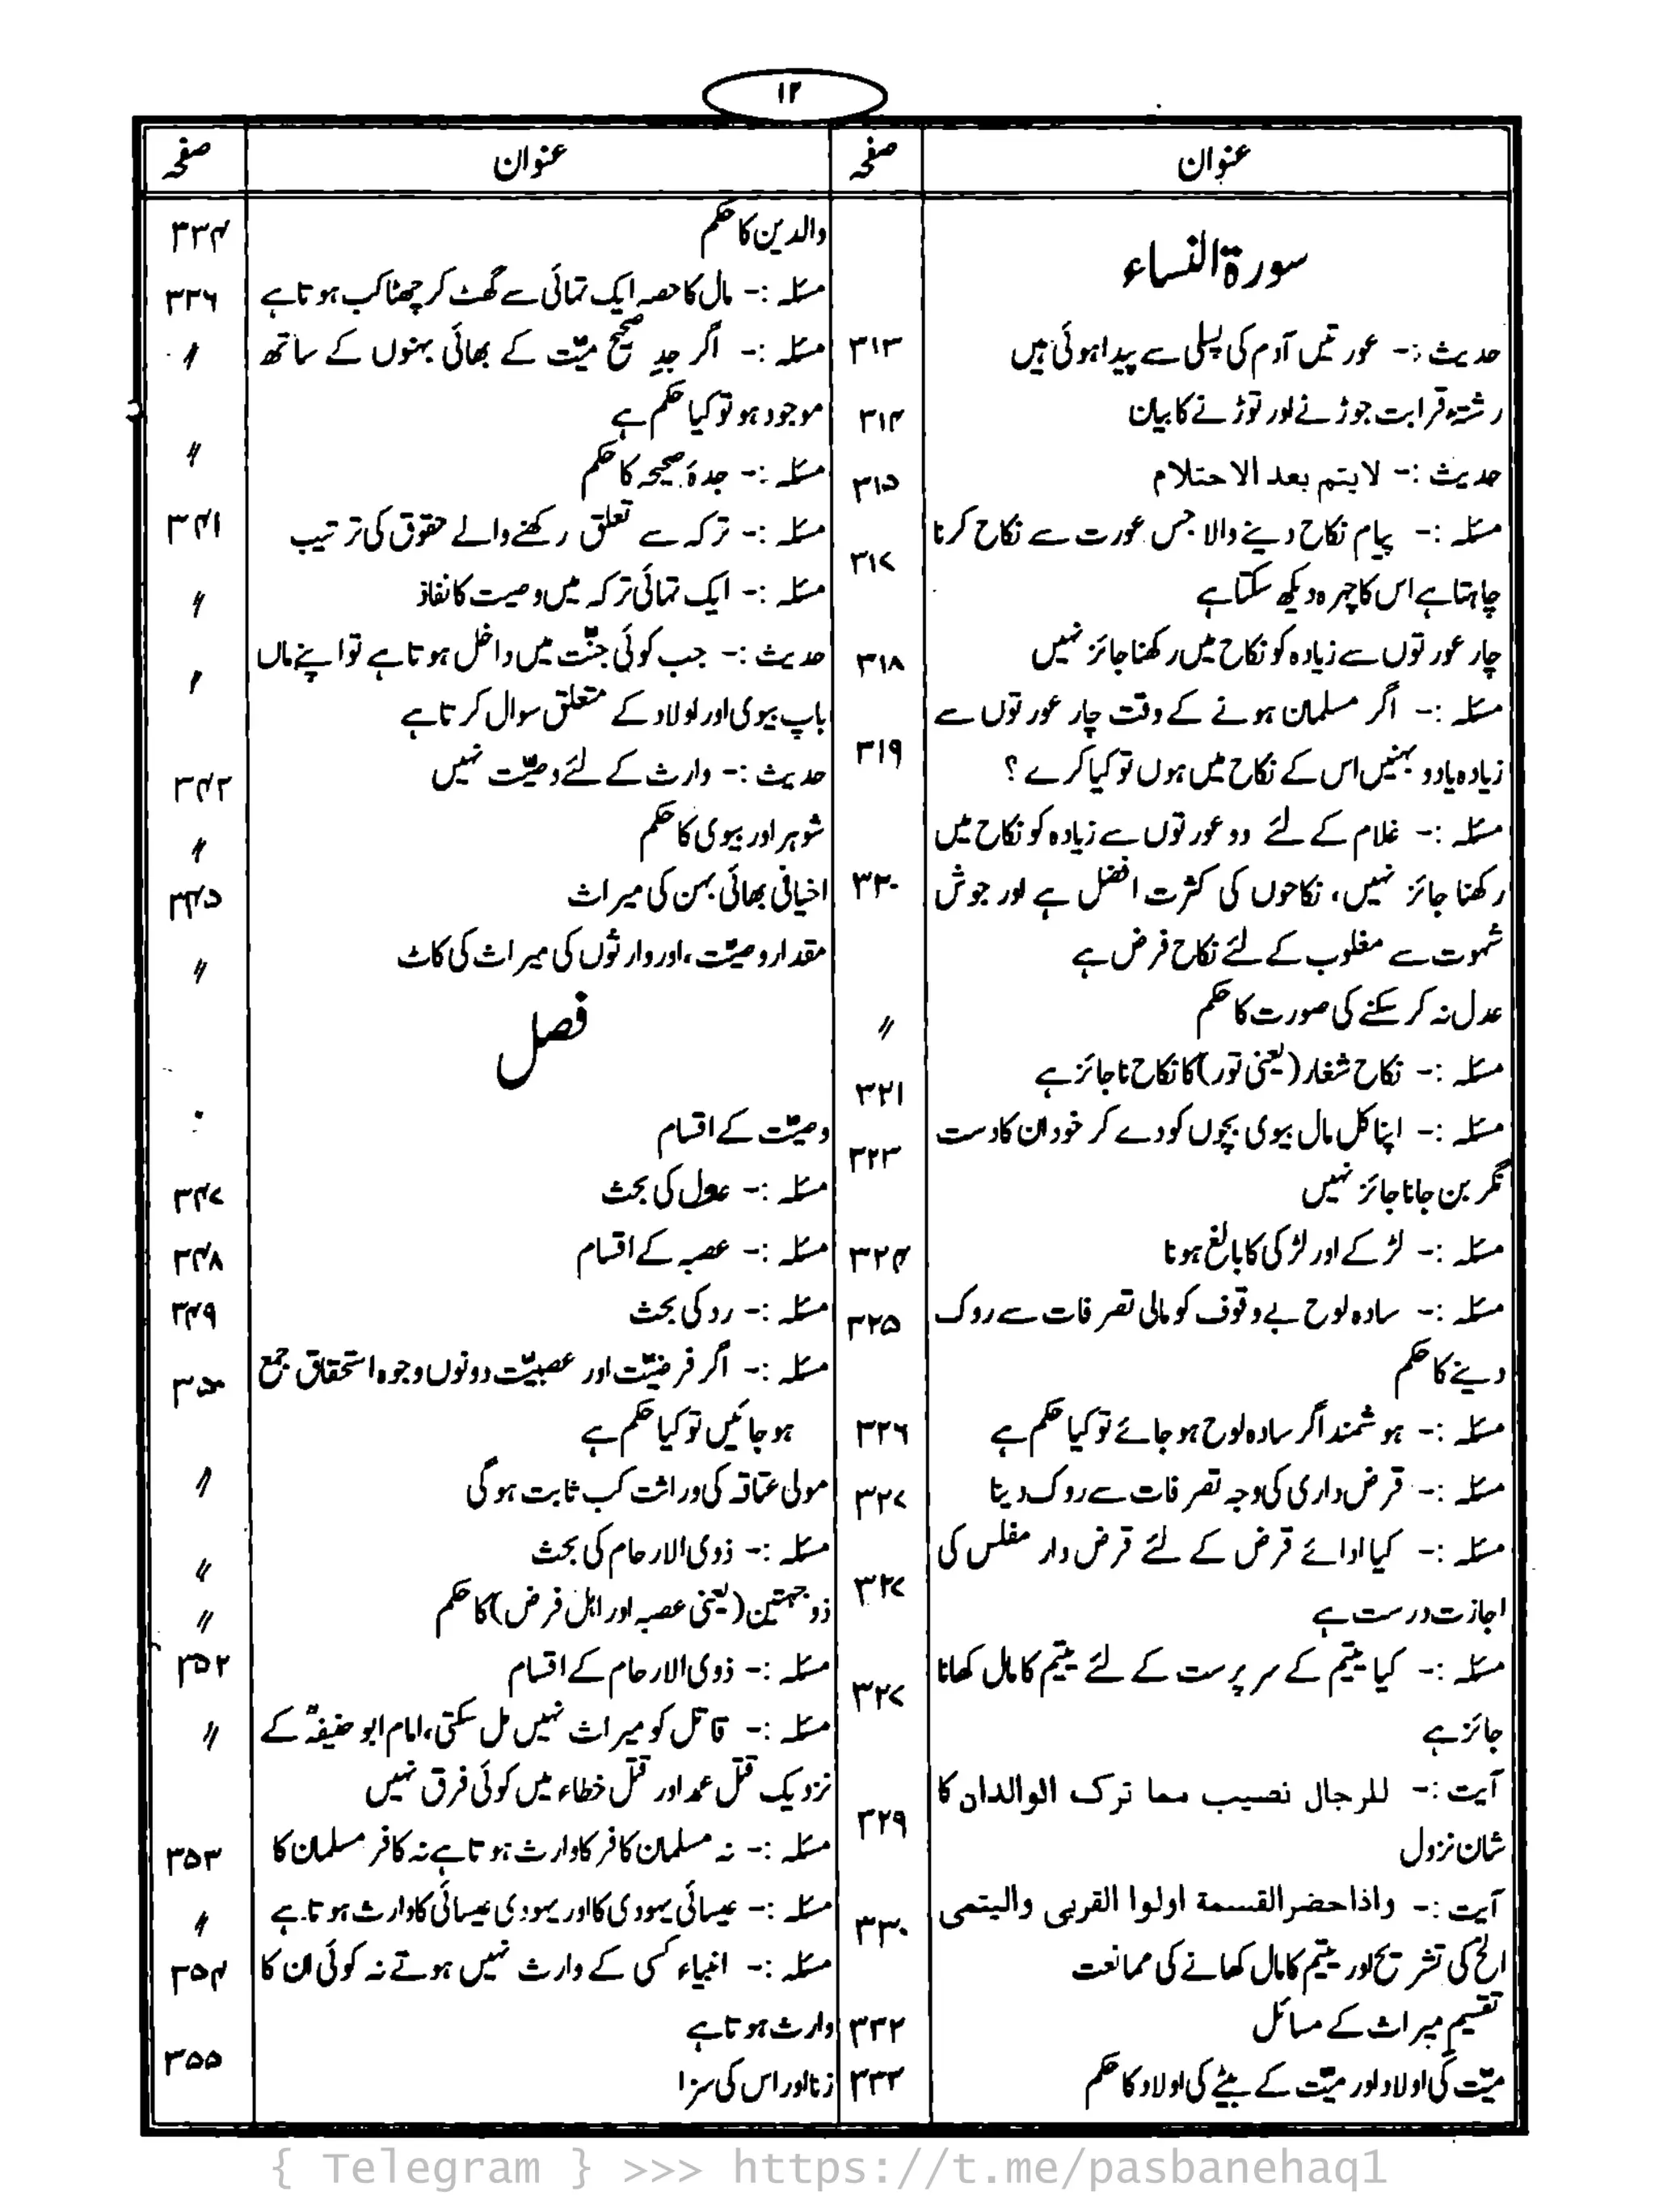 ۱۲
عنوان
صفحہ
سورۃ النساء
حدیث :- عورتیں آدم کی پسلی سے پیدا ہوئی ہیں ۳۱۳
رشتۂ قرابت جوڑنے اور توڑنے کا بیان ۳۱۴
حدیث :- لا یتم بعد الاحتلام ۳۱۵
مسئلہ :- پیام نکاح دینے والا جس عورت سے نکاح کرنا ۳۱۷
چاہتا ہے اس کا چہرہ دیکھ سکتا ہے
چار عورتوں سے زیادہ کو نکاح میں رکھنا جائز نہیں ۳۱۸
مسئلہ :- اگر مسلمان ہونے کے وقت چار عورتوں سے
زیادہ یا دو بہنیں اس کے نکاح میں ہوں تو کیا کرے ؟ ۳۱۹
مسئلہ :- غلام کے لئے دو عورتوں سے زیادہ کو نکاح میں
رکھنا جائز نہیں، نکاحوں کی کثرت افضل ہے اور جوش ۳۲۰
شہوت سے مغلوب کے لئے نکاح فرض ہے
عدل نہ کر سکنے کی صورت کا حکم 〃
مسئلہ :- نکاح شغار (یعنی تور) کا نکاح ناجائز ہے ۳۲۱
مسئلہ :- اپنا کل مال بیوی بچوں کو دے کر خود ان کا دست ۳۲۳
نگر بن جانا جائز نہیں
مسئلہ :- لڑکے اور لڑکی کا بالغ ہونا ۳۲۴
مسئلہ :- سادہ لوح بے وقوف کو مالی تصرفات سے روک ۳۲۵
دینے کا حکم
مسئلہ :- ہوشمند اگر سادہ لوح ہو جائے تو کیا حکم ہے ۳۲۶
مسئلہ :- قرض داری کی وجہ تصرفات سے روک دینا ۳۲۷
مسئلہ :- کیا ادائے قرض کے لئے قرض دار مفلس کی ۳۲۷
اجازت درست ہے
مسئلہ :- کیا یتیم کے سرپرست کے لئے یتیم کا مال کھانا ۳۲۷
جائز ہے
آیت :- للرجال نصیب مما ترک الوالدان کا
شان نزول ۳۲۹
آیت :- واذا حضر القسمة اولوا القربی والیتمی ۳۳۰
الخ کی تشریح اور یتیم کا مال کھانے کی ممانعت
تقسیم میراث کے مسائل ۳۳۲
میّت کی اولاد اور میّت کے بیٹے کی اولاد کا حکم ۳۳۳
عنوان
صفحہ
والدین کا حکم ۳۳۴
مسئلہ :- مال کا حصہ ایک تہائی سے گھٹ کر چھٹا کب ہوتا ہے ۳۳۶
مسئلہ :- اگر جدِ صحیح میّت کے بھائی بہنوں کے ساتھ 〃
موجود ہو تو کیا حکم ہے
مسئلہ :- جدۂ صحیحہ کا حکم 〃
مسئلہ :- ترکہ سے تعلق رکھنے والے حقوق کی ترتیب ۳۴۱
مسئلہ :- ایک تہائی ترکہ میں وصیت کا نفاذ 〃
حدیث :- جب کوئی جنّت میں داخل ہوتا ہے تو اپنے ماں 〃
باپ بیوی اور اولاد کے متعلق سوال کرتا ہے
حدیث :- وارث کے لئے وصیّت نہیں ۳۴۲
شوہر اور بیوی کا حکم 〃
اخیافی بھائی بہن کی میراث ۳۴۵
مقدار وصیّت، اور وارثوں کی میراث کی کاٹ 〃
فصل
وصیّت کے اقسام
مسئلہ :- عول کی بحث ۳۴۷
مسئلہ :- عصبہ کے اقسام ۳۴۸
مسئلہ :- رد کی بحث ۳۴۹
مسئلہ :- اگر فرضیّت اور عصبیّت دونوں وجوہ استحقاق جمع ۳۵۰
ہو جائیں تو کیا حکم ہے
مولی عتاقہ کی وراثت کب ثابت ہوگی 〃
مسئلہ :- ذوی الارحام کی بحث 〃
ذوجہتین (یعنی عصبہ اور اہل فرض) کا حکم 〃
مسئلہ :- ذوی الارحام کے اقسام ۳۵۲
مسئلہ :- قاتل کو میراث نہیں مل سکتی، امام ابو حنیفہؒ کے 〃
نزدیک قتل عمد اور قتل خطاء میں کوئی فرق نہیں
مسئلہ :- نہ مسلمان کافر کا وارث ہوتا ہے نہ کافر مسلمان کا ۳۵۳
مسئلہ :- عیسائی یہودی کا اور یہودی عیسائی کا وارث ہوتا ہے 〃
مسئلہ :- انبیاء کسی کے وارث نہیں ہوتے نہ کوئی ان کا ۳۵۴
وارث ہوتا ہے
زنا اور اس کی سزا ۳۵۵
{ Telegram } >>> https://t.me/pasbanehaq1